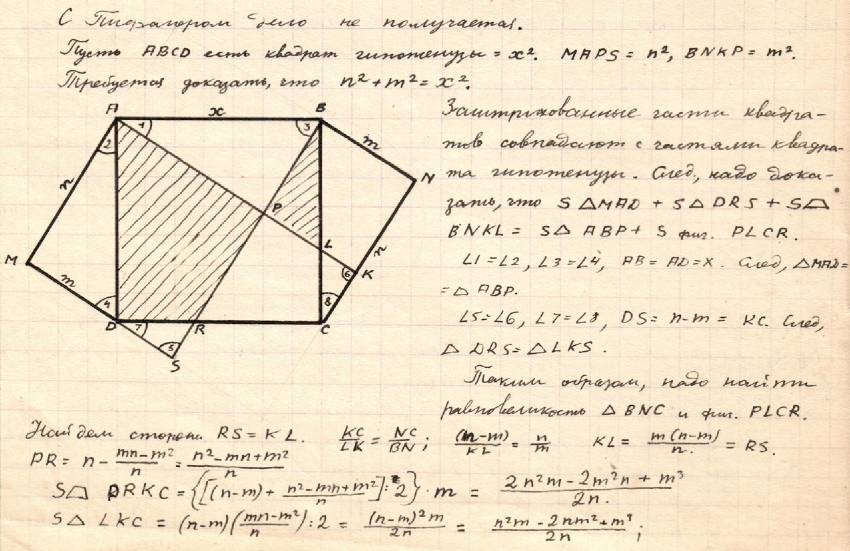 С Пифагором дело не получается.
Пусть ABCD есть квадрат гипотенузы = x². MAPS = n², BNKP = m².
Требуется доказать, что n² + m² = x².
A x B
1 3
2 m
n N
P
L n
M 6 K
m 4 8
D 7 R C
5
S
Заштрихованные части квадра-
тов совпадают с частями квадра-
та гипотенузы. След, надо дока-
зать, что S△MAD + S△DRS + S⏢
BNKL = S△ ABP + S фиг. PLCR.
∠1=∠2, ∠3=∠4, AB = AD = X. След, △MAD =
= △ ABP.
∠5=∠6, ∠7=∠8, DS = n-m = KC. След,
△ DRS = △LKS.
Таким образом, надо найти
равновеликость △ BNC и фиг. PLCR.
Найдем стороны RS = KL. KC/LK = NC/BN; (n-m)/KL = n/m KL = m(n-m)/n. = RS.
PR = n - (mn-m²)/n = (n²-mn+m²)/n
S⏢ PRKC = {[(n-m) + (n²-mn+m²)/n] : 2} · m = (2n²m - 2m²n + m³)/2n.
S△ LKC = (n-m)((mn-m²)/n) : 2 = (n-m)²m/2n = (n²m - 2nm² + m³)/2n ;